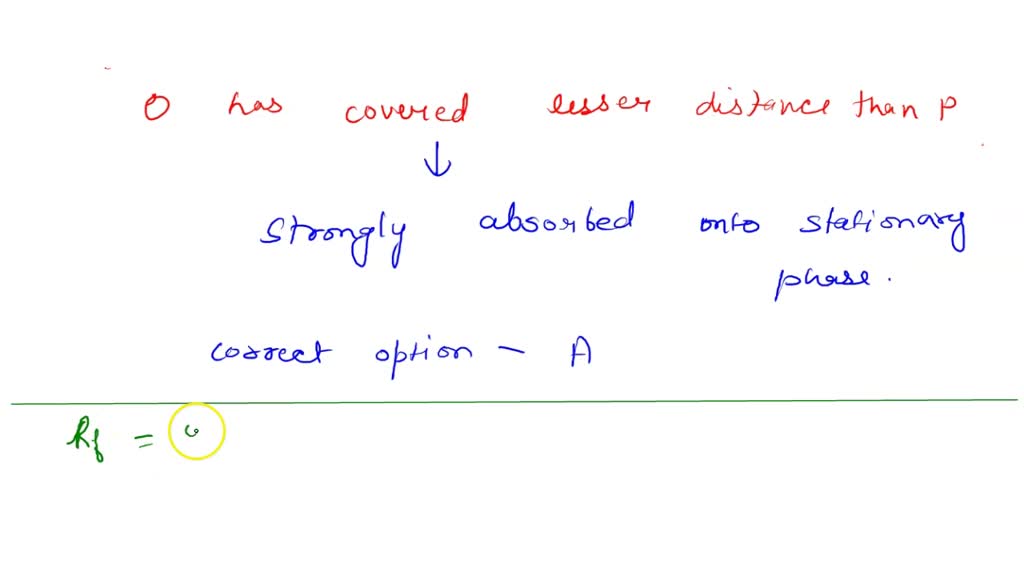 O has covered lesser distance than P
↓
strongly absorbed onto stationary
phase.
correct option - A
Rf =